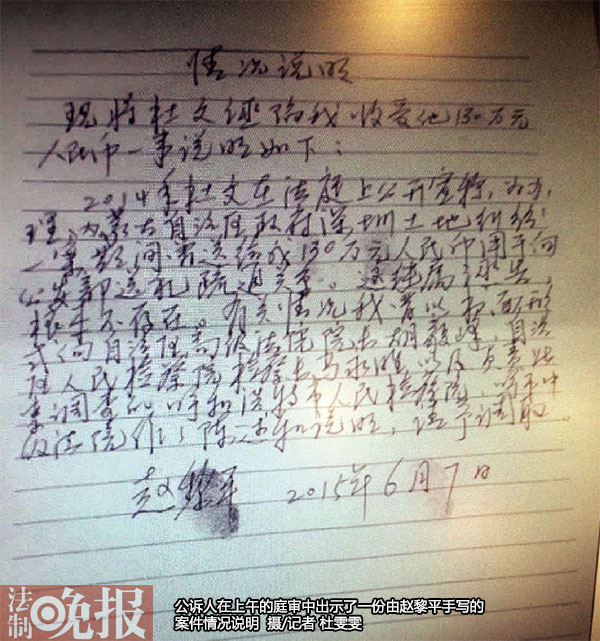 情况说明
现将杜文诬陷我收受他130万元
人民币一事说明如下：
2014年杜文在法庭上公开宣称，为办
理内蒙古自治区政府深圳土地纠纷
一案期间，曾送给我130万元人民币用于向
公安部送礼疏通关系。这纯属
根本不存在。有关情况我曾以书面形
式向自治区高级法院院长胡毅峰、自治
区人民检察院检察长马永胜以及负责此
案调查的呼和浩特市人民检察院、呼市中
级法院作了陈述和说明，请予调取。
赵黎平 2015年6月7日
法制晚报
公诉人在上午的庭审中出示了一份由赵黎平手写的
案件情况说明 摄/记者 杜雯雯